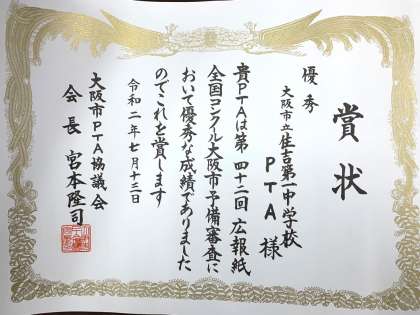 賞状
優秀
大阪市立住吉第一中学校
PTA 様
貴PTAは第四十二回広報紙
全国コンクール大阪市予備審査に
おいて優秀な成績でありました
のでこれを賞します
令和二年七月十三日
大阪市PTA協議会
会長 宮本隆司